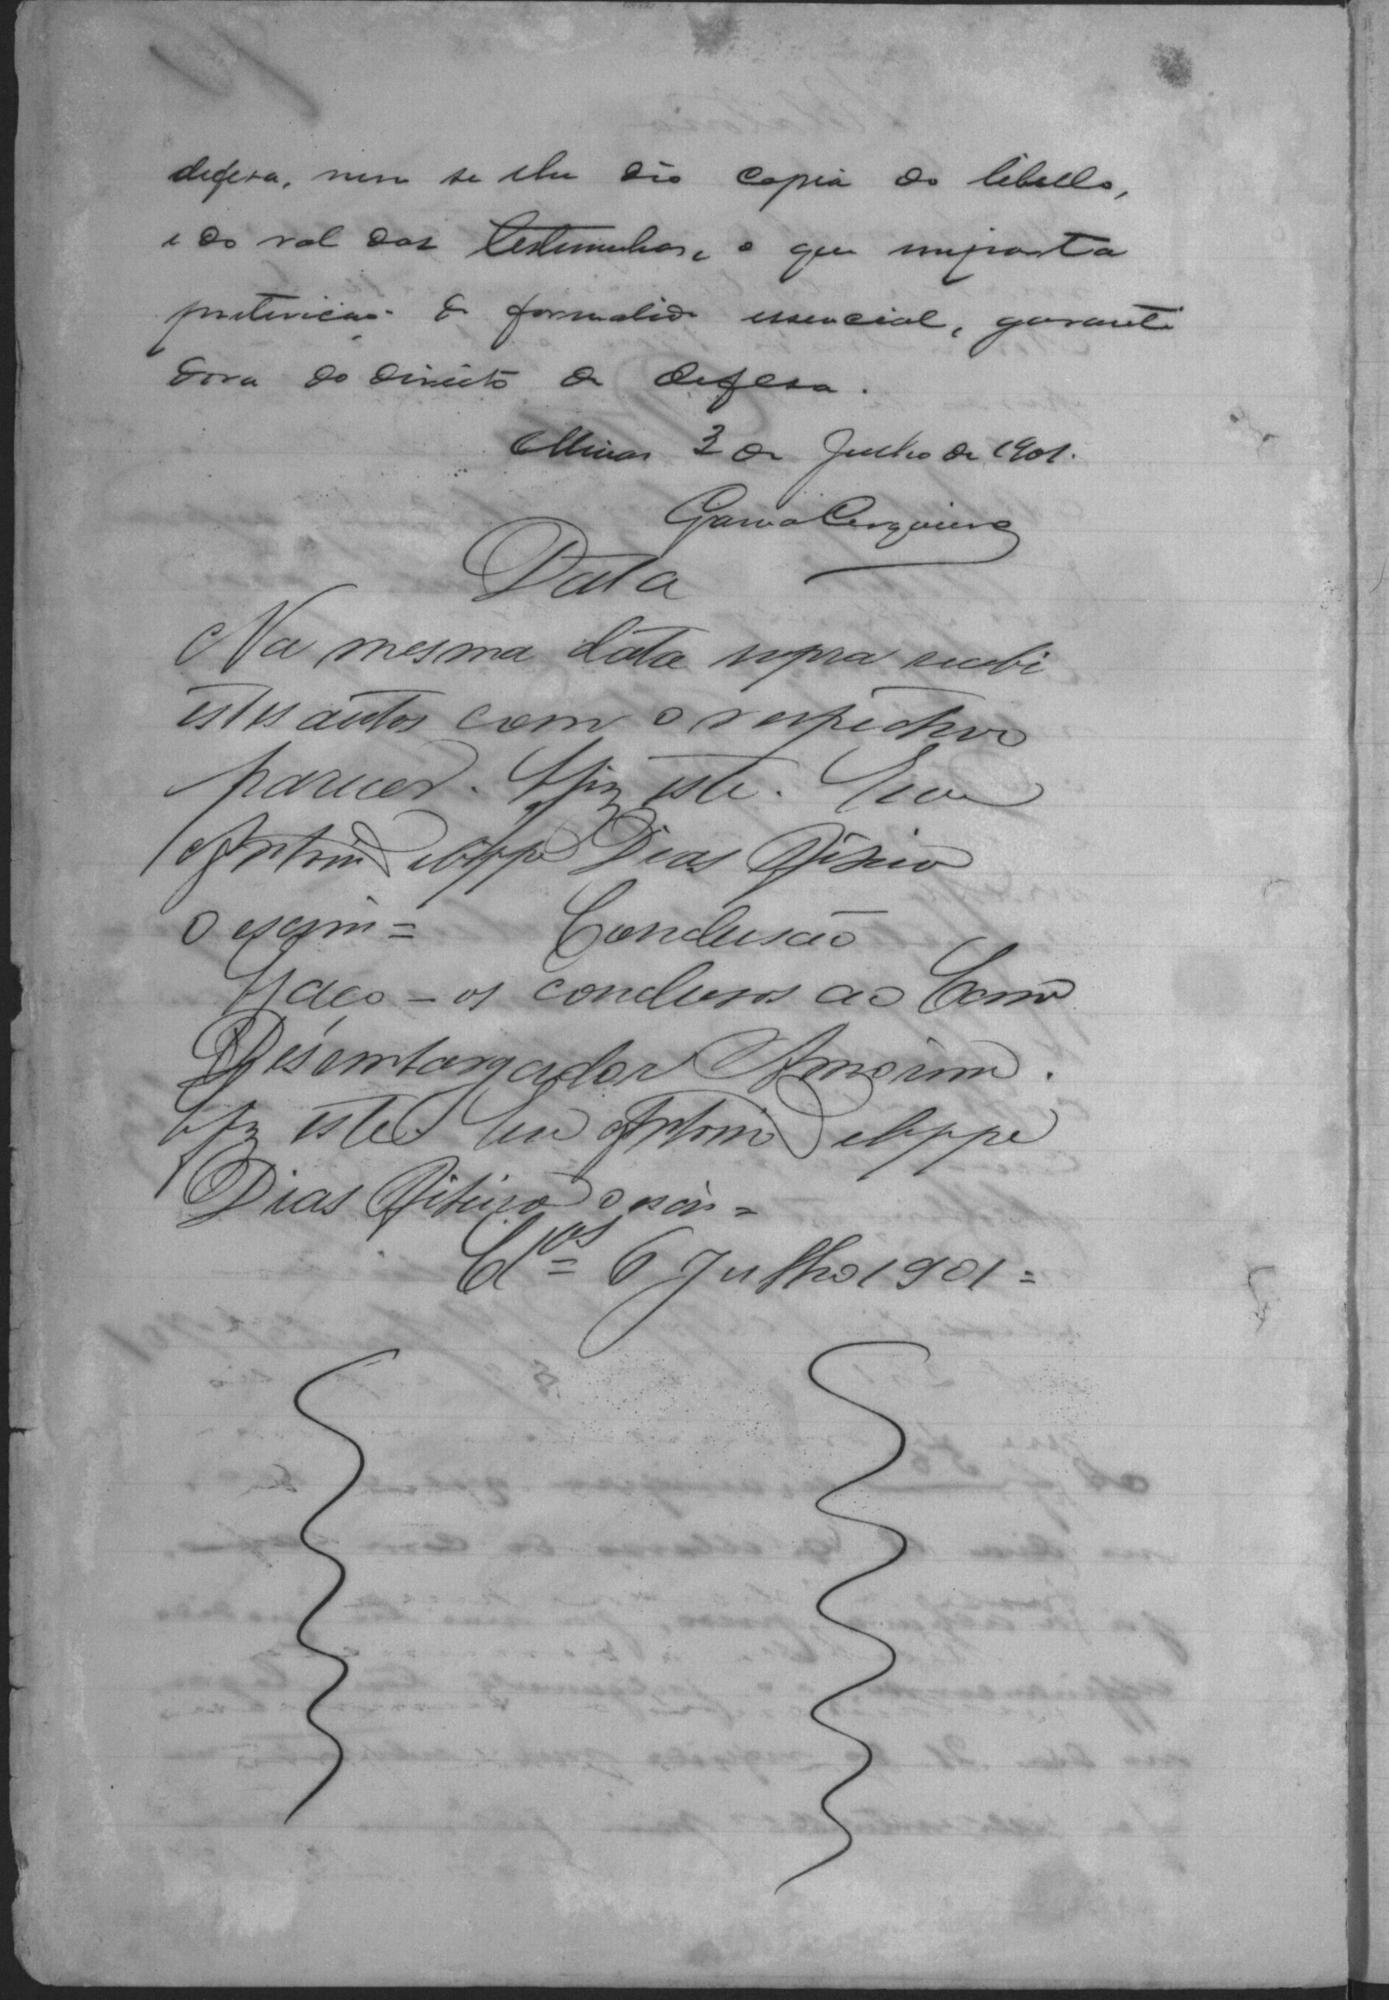 defesa, nem se lhe dêo copia do libello,
e do rol das testimunhas, o que importa
pretericão de formalide essencial, garanti
dora do direito de defesa.
Minas 3 de Julho de 1901.
Gama Cerqueira
Data
Na mesma data supra recebi
estes autos com o respectivo
parecer. Fiz este. Eu
Antonio Felippe Dias Ribeiro
o escrm =
Conclusão
Faço-os conclusos ao Exmo
Desembargador Amorim.
Fiz este. Eu Antonio Felippe
Dias Ribeiro o escr =
Clos = 6 Julho 1901 =